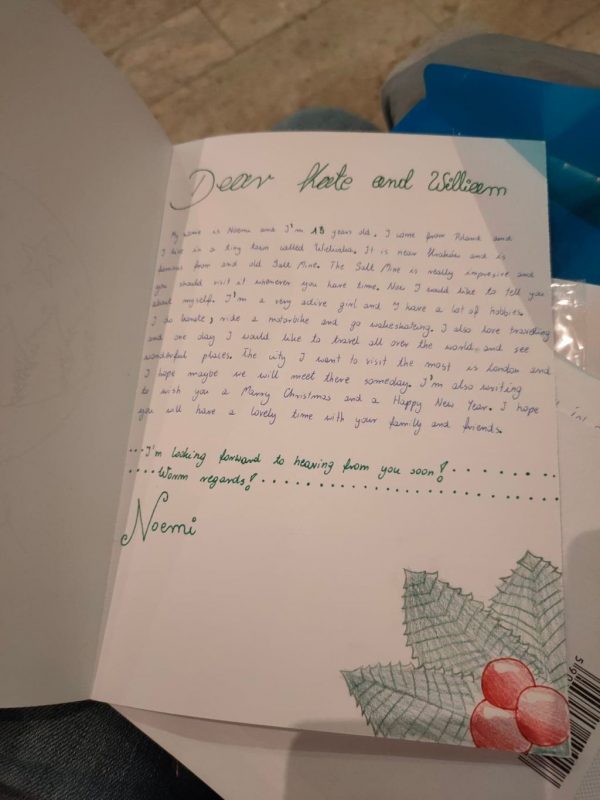 Dear Kate and William
My name is Noemi and I'm 18 years old. I come from Poland and
I live in a tiny town called Wieliczka. It is near Kraków and is
famous from and old Salt Mine. The Salt Mine is really impresive and
you should visit it whenever you have time. Now I would like to tell you
about myself. I'm a very active girl and I have a lot of hobbies.
I do karate, ride a motorbike and go wakeskating. I also love travelling
and one day I would like to travel all over the world and see
wonderful places. The city I want to visit the most is London and
I hope maybe we will meet there someday. I'm also writing
to wish you a Marry Christmas and a Happy New Year. I hope
you will have a lovely time with your familly and friends.
...I'm looking forward to hearing from you soon!
....Worm regards!
Noemi